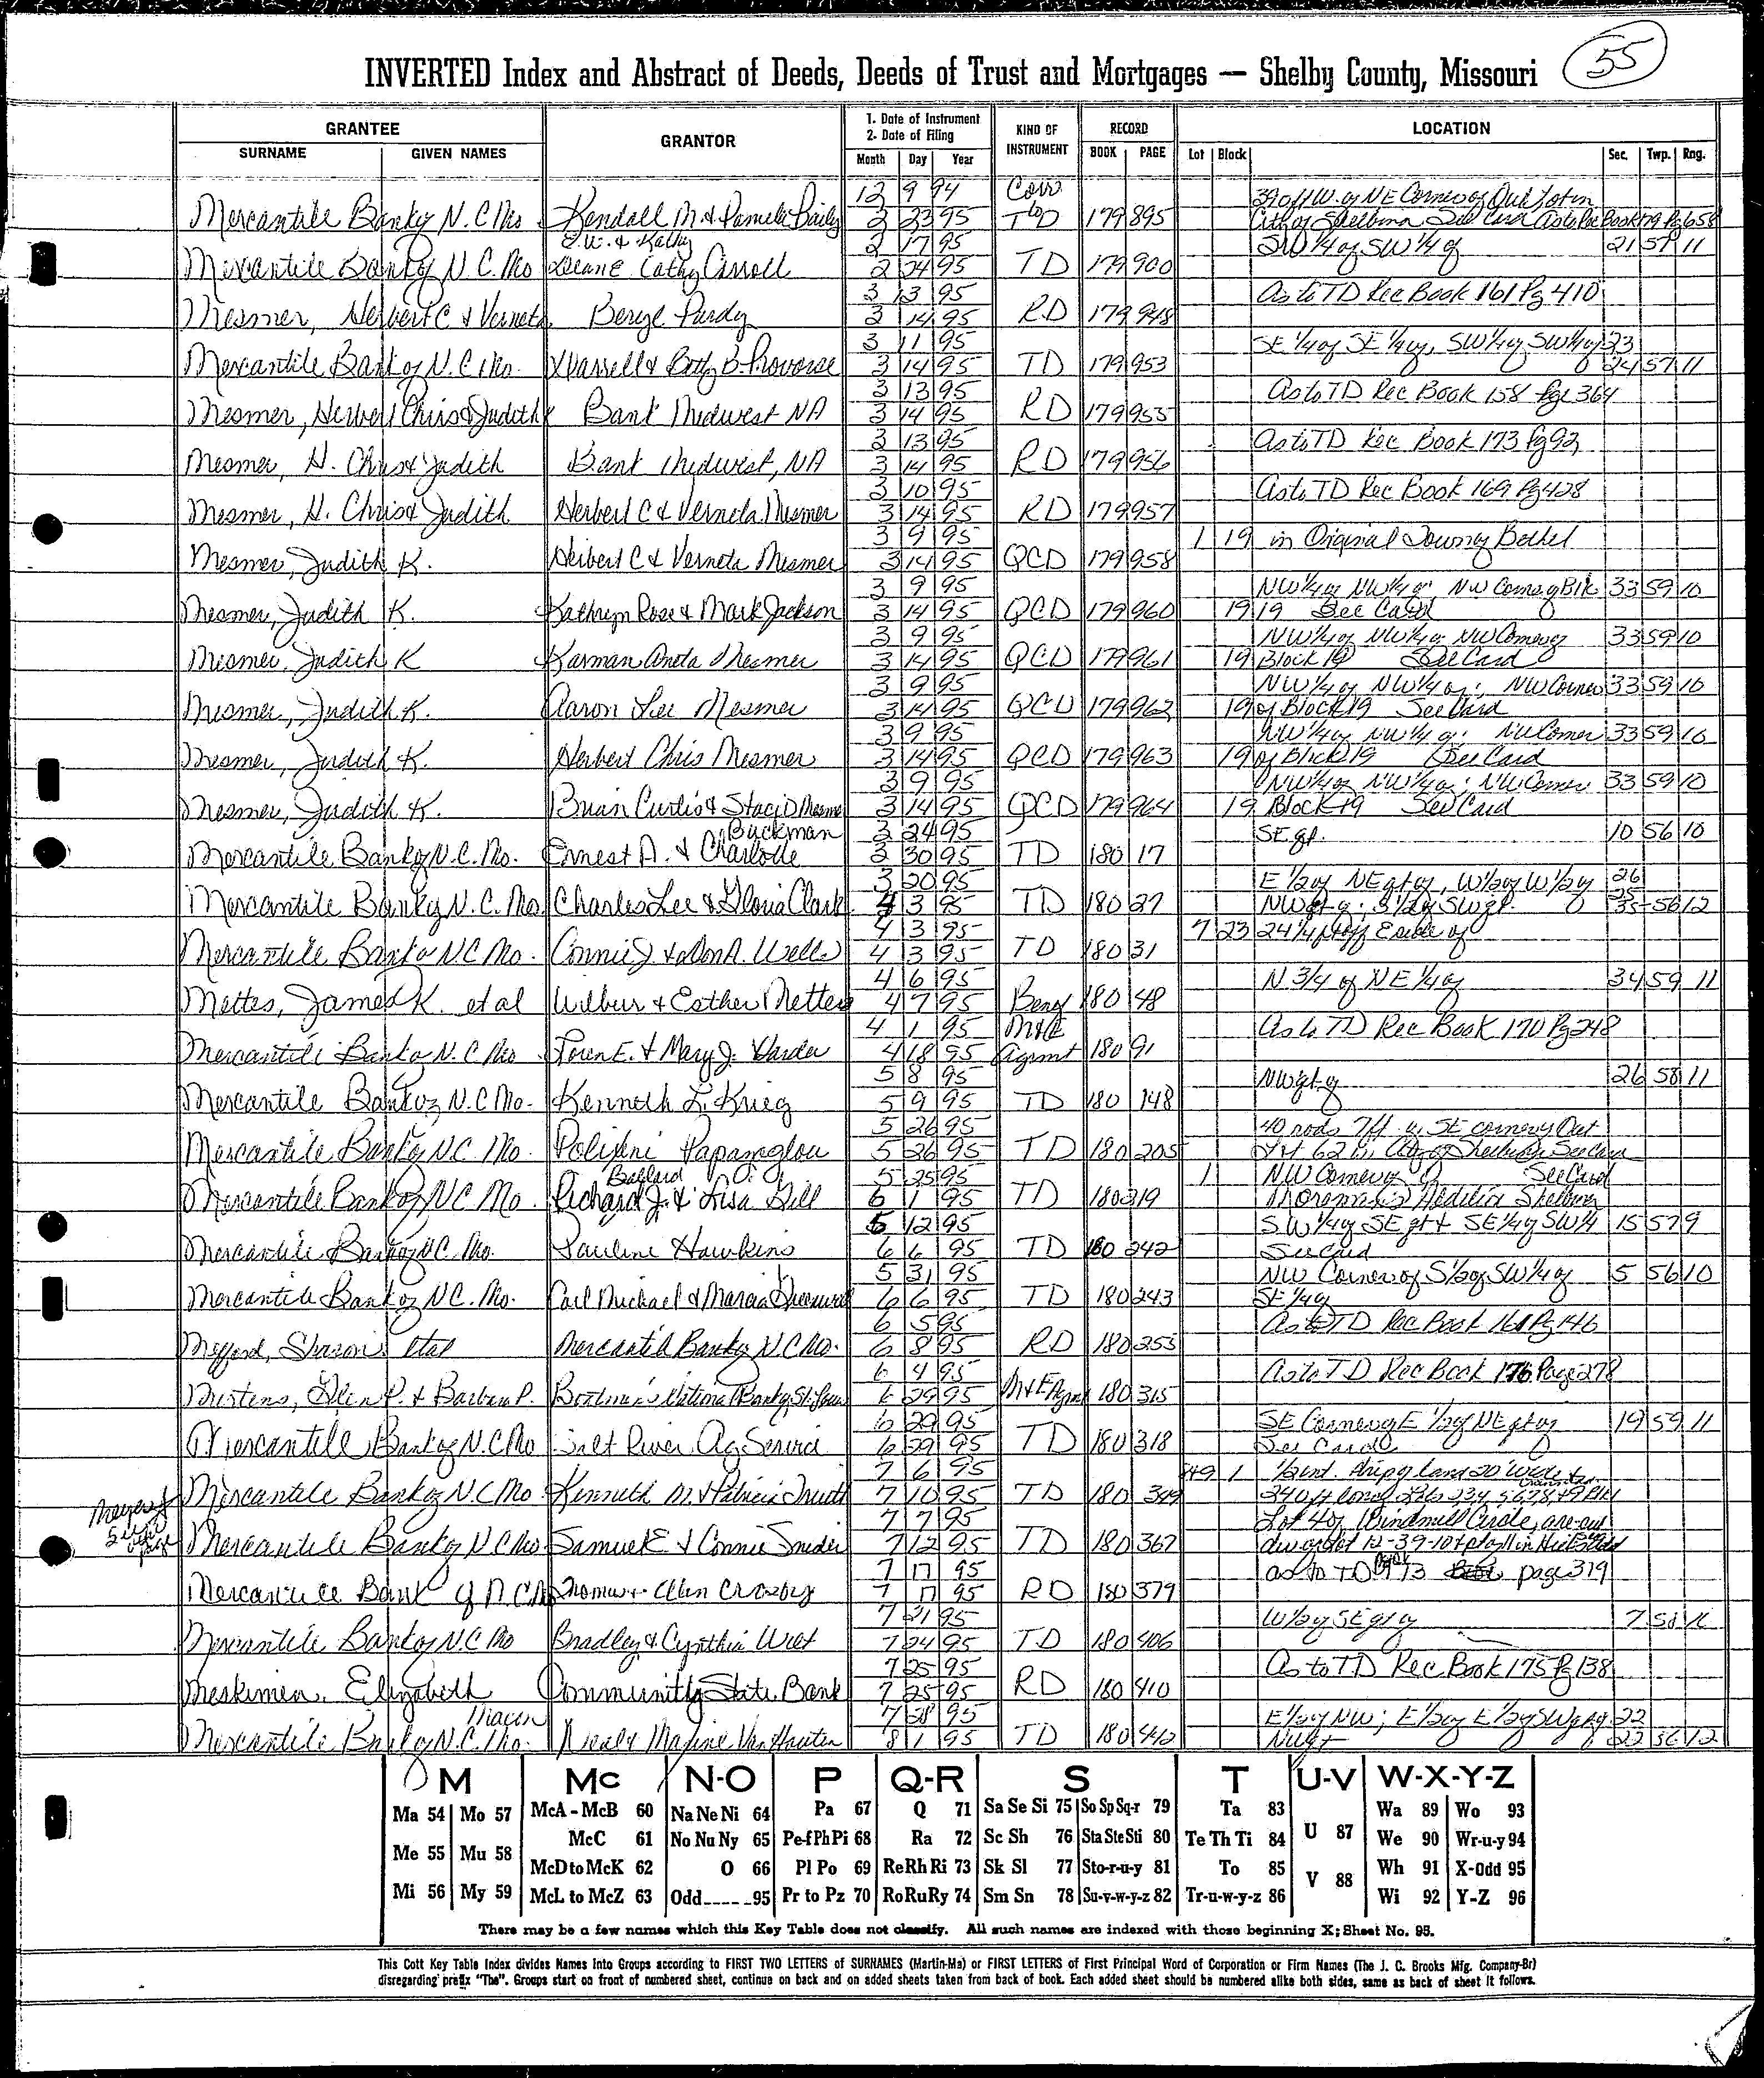 55
INVERTED Index and Abstract of Deeds, Deeds of Trust and Mortgages — Shelby County, Missouri
GRANTEE
SURNAME GIVEN NAMES
GRANTOR
1. Date of Instrument
2. Date of Filing
Month Day Year
KIND OF
INSTRUMENT
RECORD
BOOK PAGE
LOCATION
Lot Block Sec. Twp. Rng.
12 9 94 Corr
Mercantile Bank of N.C. Mo Kendall M & Pamela Baily 2 23 95 TD 179 895 City of Shelbina See Card As to Rec Book 179 Pg 658
2 17 95 SW 1/4 of SW 1/4 of 21 57 11
Mercantile Bank of N.C. Mo Cathy Carroll 2 24 95 TD 179 900
3 13 95 As to TD Rec Book 161 Pg 410
Mesmer, Herbert C & Verneta Beryl Purdy 3 14 95 RD 179 948
3 11 95 SE 1/4 of SE 1/4 of, SW 1/4 of SW 1/4 of 23
Mercantile Bank of N.C. Mo. & Betty B Provorse 3 14 95 TD 179 953 24 57 11
3 13 95 As to TD Rec Book 158 Pg 364
Mesmer, Herbert Chris & Judith Bank Midwest NA 3 14 95 RD 179 955
3 13 95 As to TD Rec Book 173 Pg 92
Mesmer, H. Chris & Judith Bank Midwest, NA 3 14 95 RD 179 956
3 10 95 As to TD Rec Book 169 Pg 428
Mesmer, H. Chris & Judith Herbert C & Verneta Mesmer 3 14 95 RD 179 957
3 9 95 1 19 in Original Town of Bethel
Mesmer, Judith K. Herbert C & Verneta Mesmer 3 14 95 QCD 179 958
3 9 95 NW 1/4 of NW 1/4 of; NW Corner of Blk 33 59 10
Mesmer, Judith K. Kathryn Rose & Mark Jackson 3 14 95 QCD 179 960 19 19 See Card
3 9 95 NW 1/4 of NW 1/4 of NW Corner of 33 59 10
Mesmer, Judith K Karman Aneta Mesmer 3 14 95 QCD 179 961 19 Block 19 See Card
3 9 95 NW 1/4 of NW 1/4 of; NW Corner 33 59 10
Mesmer, Judith K. Aaron Lee Mesmer 3 14 95 QCD 179 962 19 of Block 19 See Card
3 9 95 NW 1/4 of NW 1/4 of; NW Corner 33 59 10
Mesmer, Judith K. Herbert Chris Mesmer 3 14 95 QCD 179 963 19 of Block 19 See Card
3 9 95 NW 1/4 of NW 1/4 of; NW Corner 33 59 10
Mesmer, Judith K. Brian Curtis & Staci D Mesmer 3 14 95 QCD 179 964 19 Block 19 See Card
Buckman 3 24 95 SE qt. 10 56 10
Mercantile Bank of N.C. Mo. Ernest A. & Charlotte 3 30 95 TD 180 17
3 20 95 E 1/2 of NE qt of, W 1/2 of W 1/2 of 26
Mercantile Bank of N.C. Mo. Charles Lee & Gloria Clark 4 3 95 TD 180 27 56 12
4 3 95 7 23 24 1/4 ft off E side of
Mercantile Bank of N C Mo. Connie J & Don A. Wells 4 3 95 TD 180 31
4 6 95 N 3/4 of NE 1/4 of 34 59 11
Mettes, James K. et al Wilbur & Esther Mettes 4 7 95 Benef 180 48
4 1 95 M&E As to TD Rec Book 170 Pg 248
Mercantile Bank of N.C. Mo Loren E. & Mary J. Harder 4 18 95 Agrmt 180 91
5 8 95 NW qt of 26 58 11
Mercantile Bank of N.C Mo. Kenneth L. Krieg 5 9 95 TD 180 148
5 26 95 40 rods 7 ft of SE corner of Out
Mercantile Bank of N C Mo. Polixeni Papanglou 5 26 95 TD 180 205 Lot 62 in City of Shelbina See Card
Ballard 5 25 95 1 NW Corner of See Card
Mercantile Bank of N C Mo. Richard J. & Lisa Gill 6 1 95 TD 180 219 Shelbina
5 12 95 SW 1/4 of SE qt & SE 1/4 of SW 1/4 15 57 9
Mercantile Bank of N C. Mo. Pauline Hawkins 6 6 95 TD 180 242 See Card
5 31 95 NW Corner of S 1/2 of SW 1/4 of 5 56 10
Mercantile Bank of N C. Mo. Carl Michael & Marcia Greenwell 6 6 95 TD 180 243 SE 1/4 of
6 5 95 As to TD Rec Book 161 Pg 146
Mefford, Sharon et al Mercantile Bank of N C Mo. 6 8 95 RD 180 255
6 4 95 As to TD Rec Book 176 Page 278
Mertens, Glen P. & Barbara P. Boatmen's National Bank of St. Louis 6 29 95 M&E Agmt 180 315
6 29 95 SE Corner of E 1/2 of NE qt of 19 59 11
Mercantile Bank of N.C. Mo Salt River Ag Service 6 29 95 TD 180 318 See Card
7 6 95 49 1 1/2 int. strip of land 20' wide &
Mercantile Bank of N.C Mo Kenneth M. & Patricia Truitt 7 10 95 TD 180 349 240 ft long Lots 2 3 4 5 6 7 8 & 9 Blk 1
7 7 95 Lot 4 of Windmill Circle,
Mercantile Bank of N C Mo Samuel E & Connie Snider 7 12 95 TD 180 367
7 17 95 as to TD Book 173 page 319
Mercantile Bank of N C Mo Thomas & Ellen Crosby 7 17 95 RD 180 379
7 21 95 W 1/2 of SE qt of 7
Mercantile Bank of N.C Mo Bradley & Cynthia West 7 24 95 TD 180 406
7 25 95 As to TD Rec Book 175 Pg 138
Meskimen, Elizabeth Community State Bank 7 25 95 RD 180 410
Macon 7 28 95 E 1/2 of NW; E 1/2 of E 1/2 of SW qt of 22
Mercantile Bank of N.C. Mo. Neal & Maxine Van Houten 8 1 95 TD 180 442 56 12
M Mc N-O P Q-R S T U-V W-X-Y-Z
Ma 54 Mo 57 McA - McB 60 Na Ne Ni 64 Pa 67 Q 71 Sa Se Si 75 So Sp Sq-r 79 Ta 83 Wa 89 Wo 93
Me 55 Mu 58 McC 61 No Nu Ny 65 Pe-f Ph Pi 68 Ra 72 Sc Sh 76 Sta Ste Sti 80 Te Th Ti 84 U 87 We 90 Wr-u-y 94
McD to McK 62 O 66 Pl Po 69 Re Rh Ri 73 Sk Sl 77 Sto-r-u-y 81 To 85 V 88 Wh 91 X-Odd 95
Mi 56 My 59 McL to McZ 63 Odd 95 Pr to Pz 70 Ro Ru Ry 74 Sm Sn 78 Su-v-w-y-z 82 Tr-u-w-y-z 86 Wi 92 Y-Z 96
There may be a few names which this Key Table does not classify. All such names are indexed with those beginning X; Sheet No. 95.
This Cott Key Table Index divides Names into Groups according to FIRST TWO LETTERS of SURNAMES (Martin-Ma) or FIRST LETTERS of First Principal Word of Corporation or Firm Names (The J. C. Brooks Mfg. Company-Br)
disregarding prefix "The". Groups start on front of numbered sheet, continue on back and on added sheets taken from back of book. Each added sheet should be numbered alike both sides, same as back of sheet it follows.